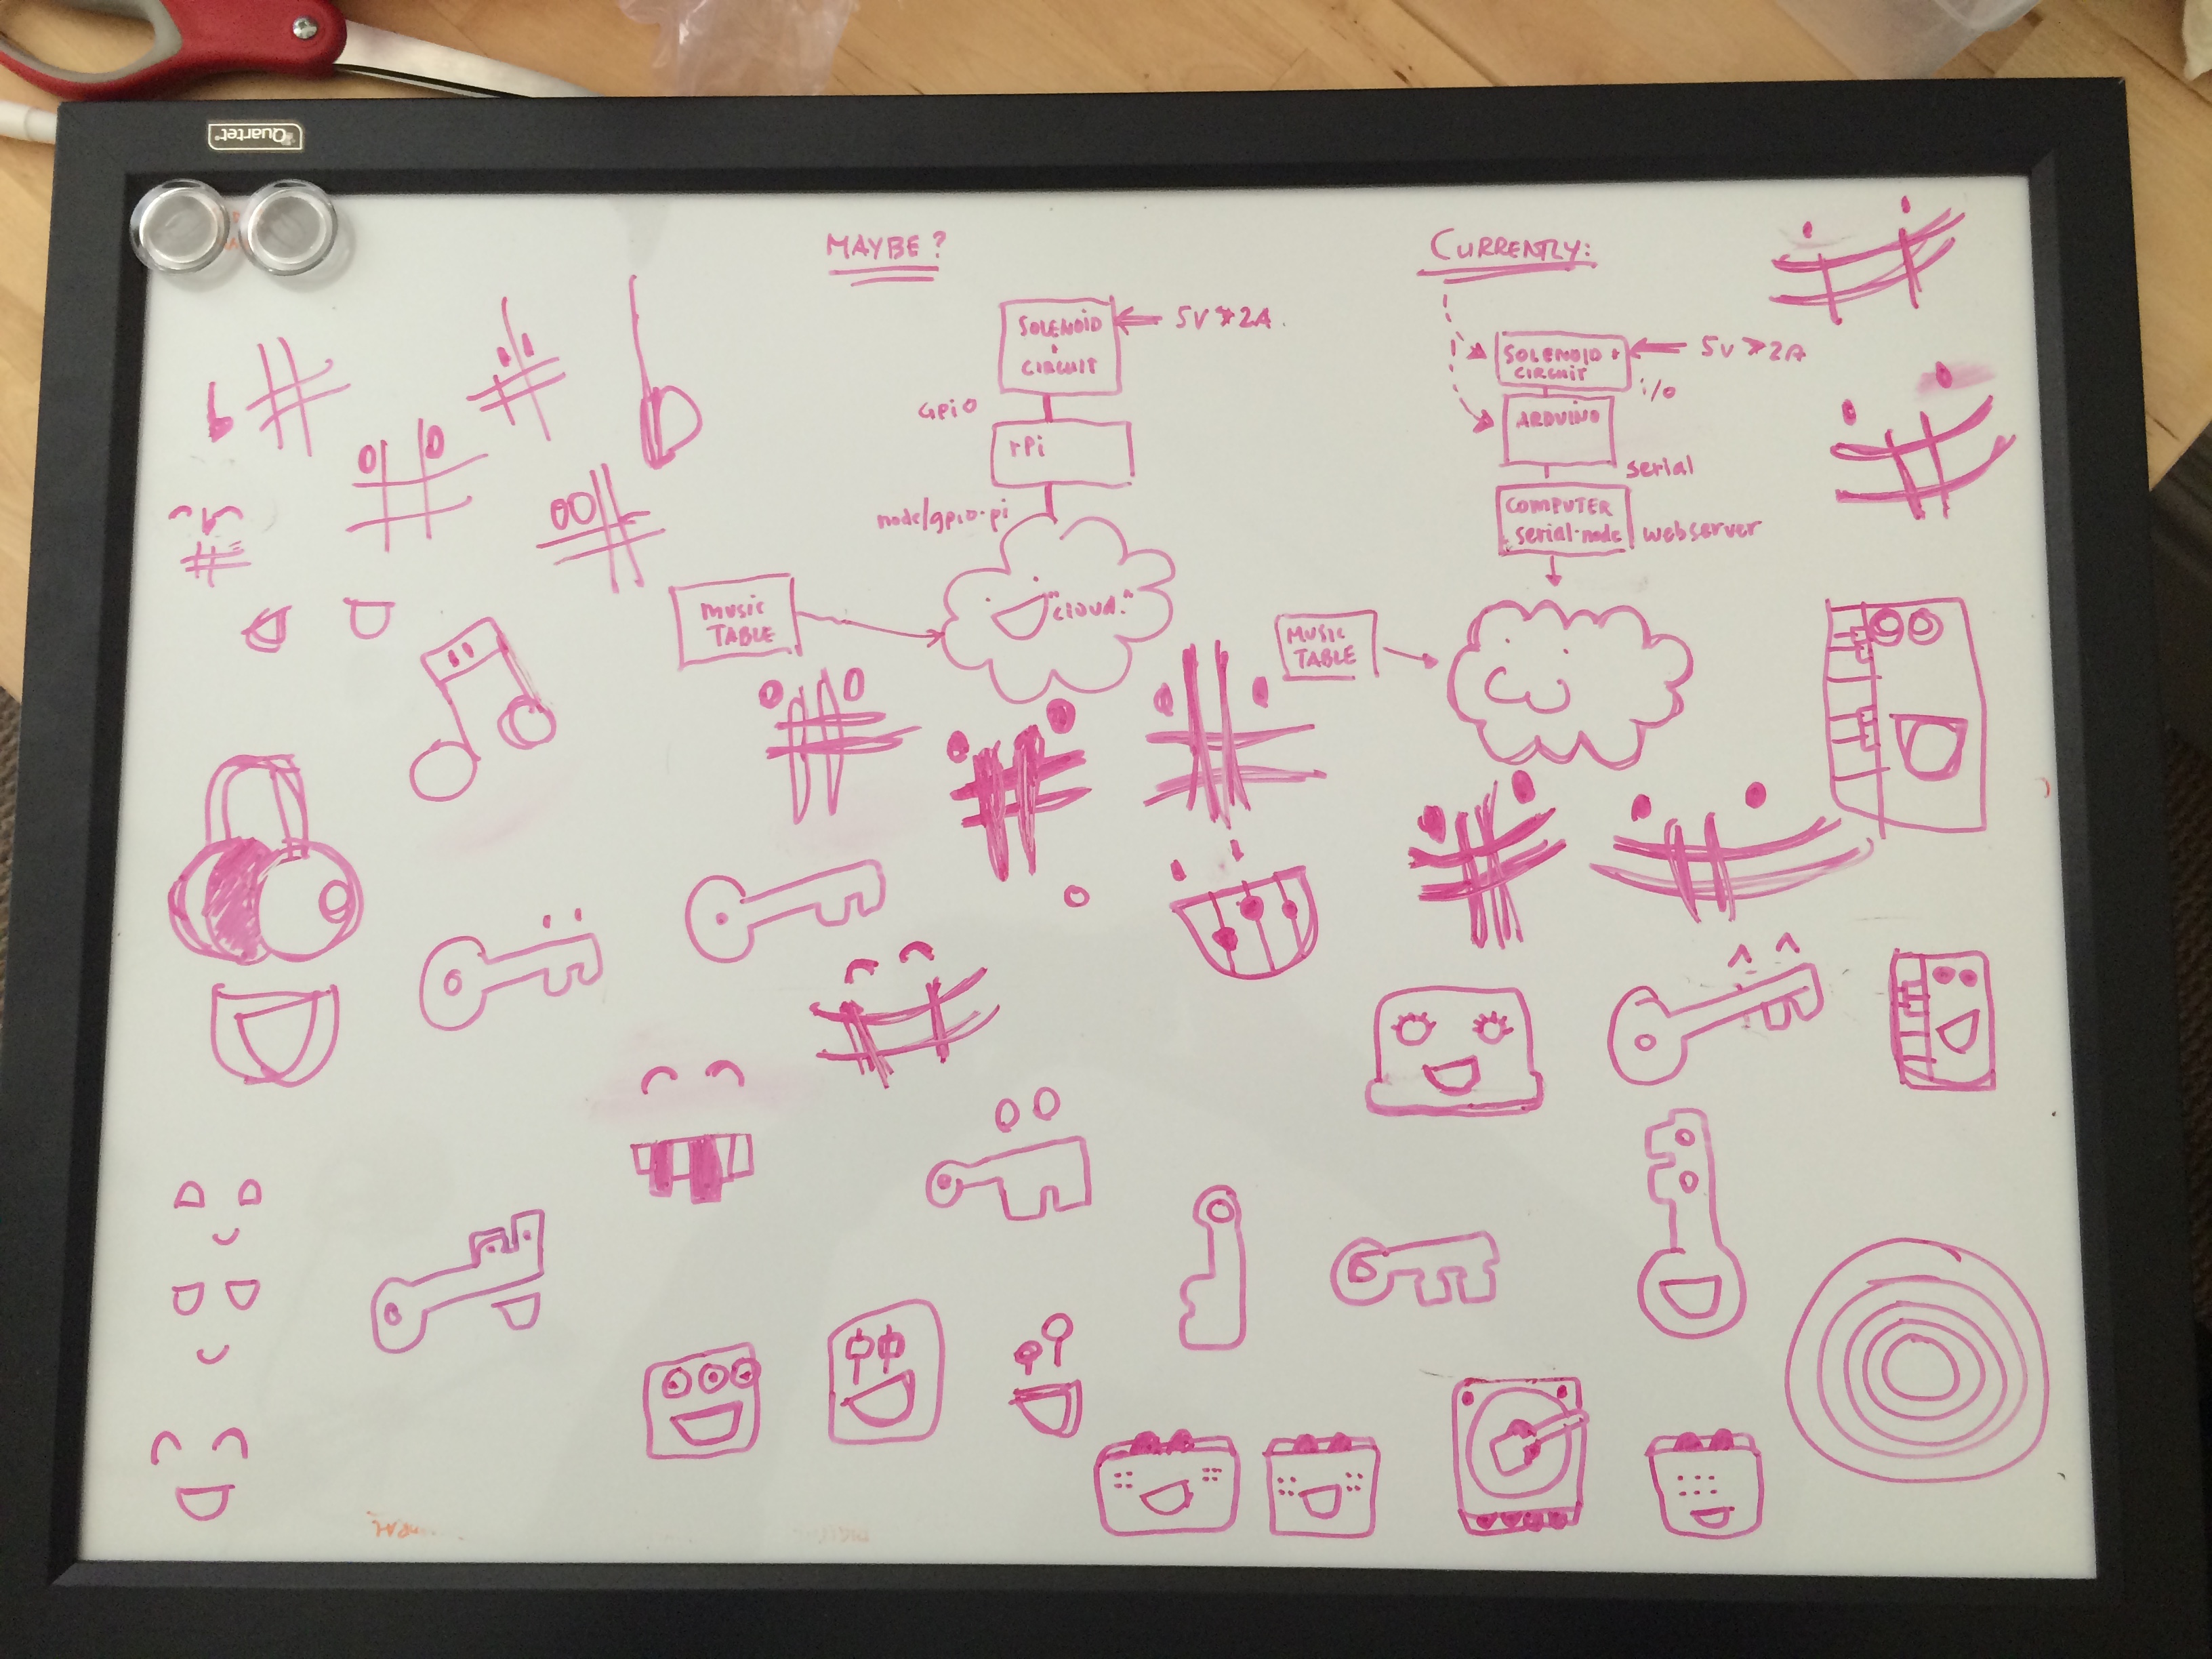 Quartet
MAYBE?
SOLENOID
+
CIRCUIT
5V 2A
GPiO
rPi
node/gpio-pi
MUSIC
TABLE
"cloud."
CURRENTLY:
SOLENOID +
CIRCUIT
5V >2A
i/o
ARDUINO
serial
COMPUTER
serial-node
webserver
MUSIC
TABLE